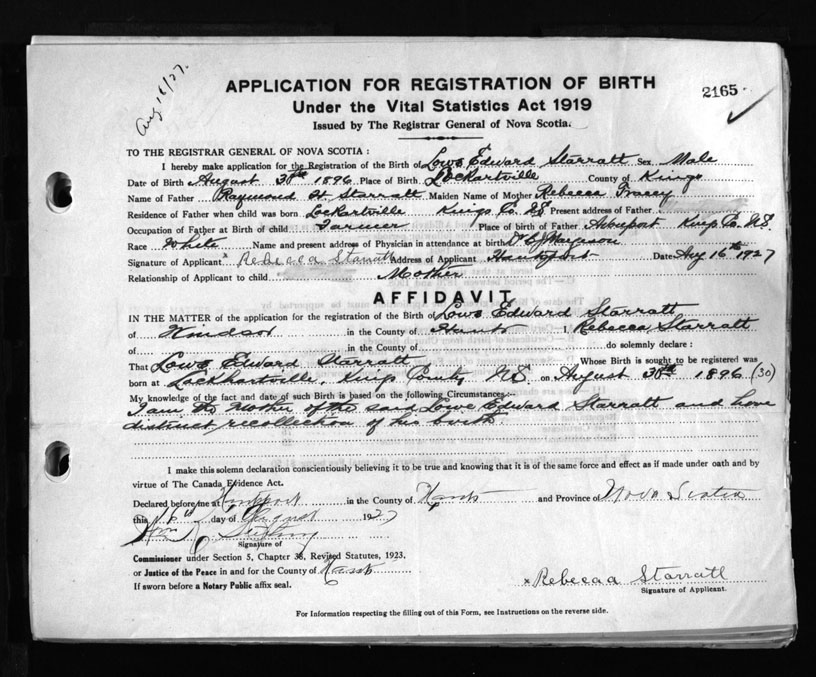 Aug 16/27.
APPLICATION FOR REGISTRATION OF BIRTH
2165
Under the Vital Statistics Act 1919
Issued by The Registrar General of Nova Scotia.
TO THE REGISTRAR GENERAL OF NOVA SCOTIA :
I hereby make application for the Registration of the Birth of Lowe Edward Starratt Sex Male
Date of Birth August 30th 1896 Place of Birth Lockartville County of Kings
Name of Father Raymond H Starratt Maiden Name of Mother Rebecca
Residence of Father when child was born Lockartville Kings Co. N.S. Present address of Father
Occupation of Father at Birth of child Farmer Place of birth of Father Avonport Kings Co. N.S.
Race White Name and present address of Physician in attendance at birth Dr
Signature of Applicant x Rebecca Starratt Address of Applicant Hantsport Date Aug 16th 1927
Relationship of Applicant to child Mother
AFFIDAVIT
IN THE MATTER of the application for the registration of the Birth of Lowe Edward Starratt
of Windsor in the County of Hants I, Rebecca Starratt
of in the County of do solemnly declare :
That Lowe Edward Starratt Whose Birth is sought to be registered was
born at Lockhartville, Kings County N.S. on August 30th 1896 (30)
My knowledge of the fact and date of such Birth is based on the following Circumstances:-
I am the Mother of the said Lowe Edward Starratt and have
distinct recollection of his birth.
I make this solemn declaration conscientiously believing it to be true and knowing that it is of the same force and effect as if made under oath and by
virtue of The Canada Evidence Act.
Declared before me at Hantsport in the County of Hants and Province of Nova Scotia
this 16th day of August 1927
Signature of
Commissioner under Section 5, Chapter 38, Revised Statutes, 1923.
or Justice of the Peace in and for the County of Hants
If sworn before a Notary Public affix seal.
x Rebecca Starratt
Signature of Applicant.
For Information respecting the filling out of this Form, see Instructions on the reverse side.